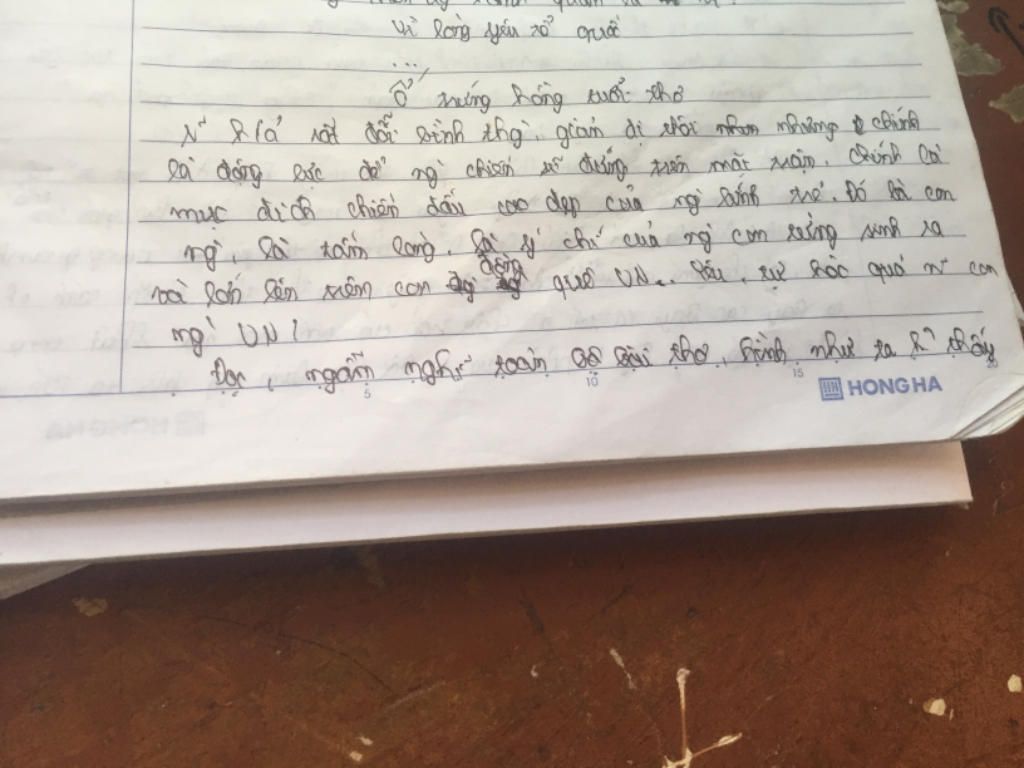 Vì lòng yêu tổ quốc
...
Ổ trứng hồng tuổi thơ
rất đỗi bình thg`, giản dị thôi nhưng chính
là động lực để ng` chiến sĩ đứng trên mặt trận. Chính là
mục đích chiến đấu cao đẹp của ng` lính trẻ. Đó là con
ng`, là tấm lòng, là ý chí của ng` con sinh ra
và lớn lên trên con đg quê VN. tự hào quá con
ng` VN!
Đọc, ngẫm nghĩ toàn bộ bài thơ, hình như ta thấy
5 10 15 20
HONG HA